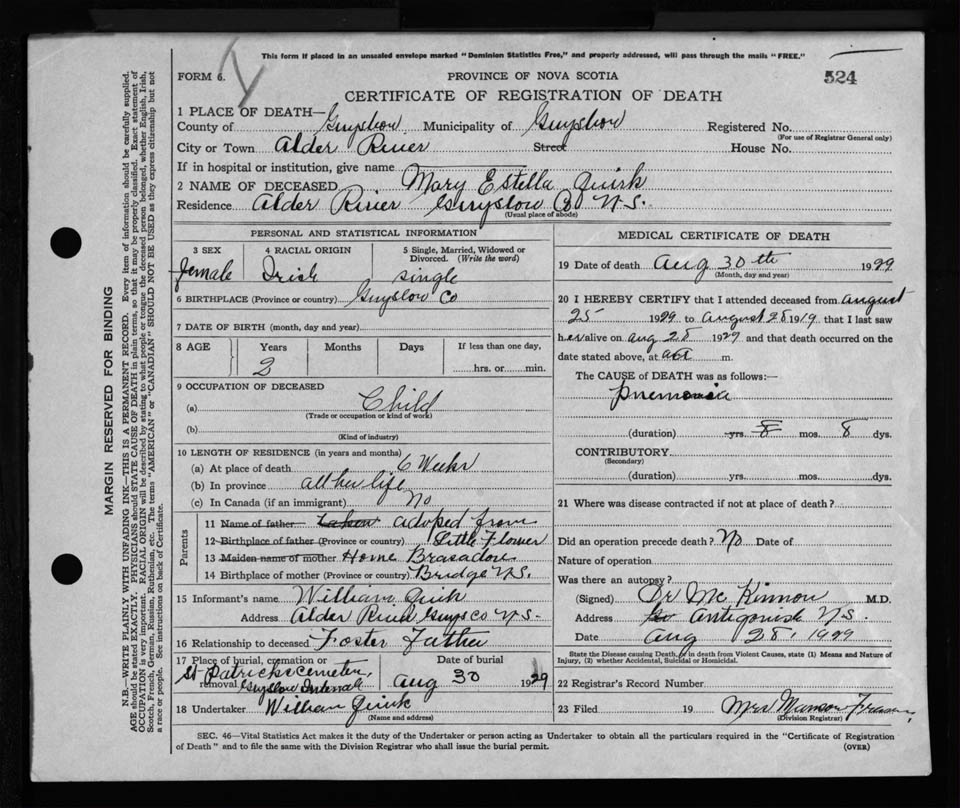 This form if placed in an unsealed envelope marked "Dominion Statistics Free," and properly addressed, will pass through the mails "FREE."
FORM 6.
PROVINCE OF NOVA SCOTIA
524
CERTIFICATE OF REGISTRATION OF DEATH
1 PLACE OF DEATH—
County of Guysboro Municipality of Guysboro Registered No.
(For use of Registrar General only)
City or Town Alder River Street House No.
If in hospital or institution, give name
2 NAME OF DECEASED Mary Estella Quirk
Residence Alder River Guysboro Co N.S.
(Usual place of abode)
PERSONAL AND STATISTICAL INFORMATION
3 SEX 4 RACIAL ORIGIN 5 Single, Married, Widowed or Divorced. (Write the word)
female Irish single
6 BIRTHPLACE (Province or country) Guysboro Co
7 DATE OF BIRTH (month, day and year)
8 AGE Years Months Days If less than one day,
2 hrs. or min.
9 OCCUPATION OF DECEASED
(a) Child
(Trade or occupation or kind of work)
(b)
(Kind of industry)
10 LENGTH OF RESIDENCE (in years and months)
(a) At place of death 6 Weeks
(b) In province all her life
(c) In Canada (if an immigrant) No
Parents
11 Name of father Taken adoped from
12 Birthplace of father (Province or country) Little Flower
13 Maiden name of mother Home Brasadore
14 Birthplace of mother (Province or country) Bridge N.S.
15 Informant's name William Quirk
Address Alder River Guys Co N.S.
16 Relationship to deceased Foster Father
17 Place of burial, cremation or Date of burial
St Patricks Cemetery,
removal Guysboro Intervale Aug 30 1929
18 Undertaker William Quirk
(Name and address)
MEDICAL CERTIFICATE OF DEATH
19 Date of death Aug 30th 1929
(Month, day and year)
20 I HEREBY CERTIFY that I attended deceased from August
25 1929 to August 28 1919 that I last saw
her alive on Aug 28 1929 and that death occurred on
date stated above, at m.
The CAUSE of DEATH was as follows:—
Pnemonia
(duration) yrs. 8 mos. 8 dys.
CONTRIBUTORY
(Secondary)
(duration) yrs. mos. dys.
21 Where was disease contracted if not at place of death?
Did an operation precede death? No Date of
Nature of operation
Was there an autopsy?
(Signed) Dr Mc Kinnon M.D.
Address Antigonish N.S.
Date Aug 28, 1929
State the Disease causing Death, or in death from Violent Causes, state (1) Means and Nature of Injury, (2) whether Accidental, Suicidal or Homicidal.
22 Registrar's Record Number
23 Filed 19 Mrs Manson
(Division Registrar)
SEC. 46—Vital Statistics Act makes it the duty of the Undertaker or person acting as Undertaker to obtain all the particulars required in the "Certificate of Registration
of Death" and to file the same with the Division Registrar who shall issue the burial permit.
(OVER)
MARGIN RESERVED FOR BINDING
N.B.—WRITE PLAINLY WITH UNFADING INK—THIS IS A PERMANENT RECORD. Every item of information should be carefully supplied.
AGE should be stated EXACTLY. PHYSICIANS should STATE CAUSE OF DEATH in plain terms, so that it may be properly classified. Exact statement of
OCCUPATION is very important. RACIAL ORIGIN will be described by stating to what people or tongue the deceased person belonged, whether English, Irish,
Scotch, French, German, Russian, Ruthenian, etc. The terms "AMERICAN" or "CANADIAN" SHOULD NOT BE USED as they express citizenship but not
a race or people. See instructions on back of Certificate.